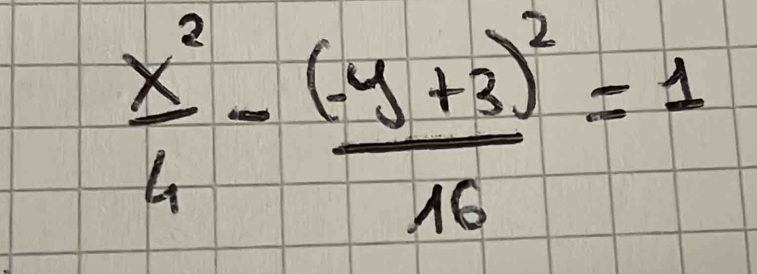 x²/4 - (-y + 3)²/16 = 1